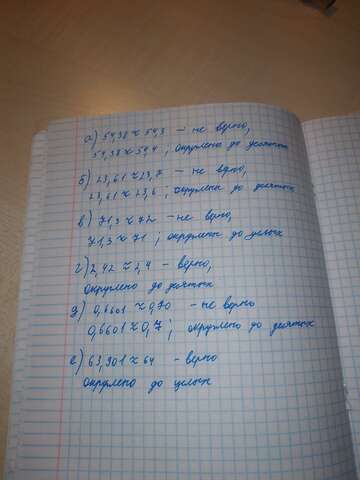 а) 54,38 ≈ 54,3 - не верно,
54,38 ≈ 54,4 , округлено до десятых
б) 23,61 ≈ 23,7 - не верно,
23,61 ≈ 23,6 , округлено до десятых
в) 71,3 ≈ 72 - не верно,
71,3 ≈ 71 ; округлено до целых
г) 2,42 ≈ 2,4 - верно,
округлено до десятых
д) 0,6601 ≈ 0,70 - не верно
0,6601 ≈ 0,7 ; округлено до десятых
е) 63,901 ≈ 64 - верно
округлено до целых